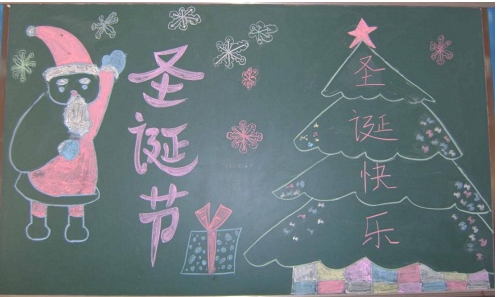 圣诞节
圣诞快乐